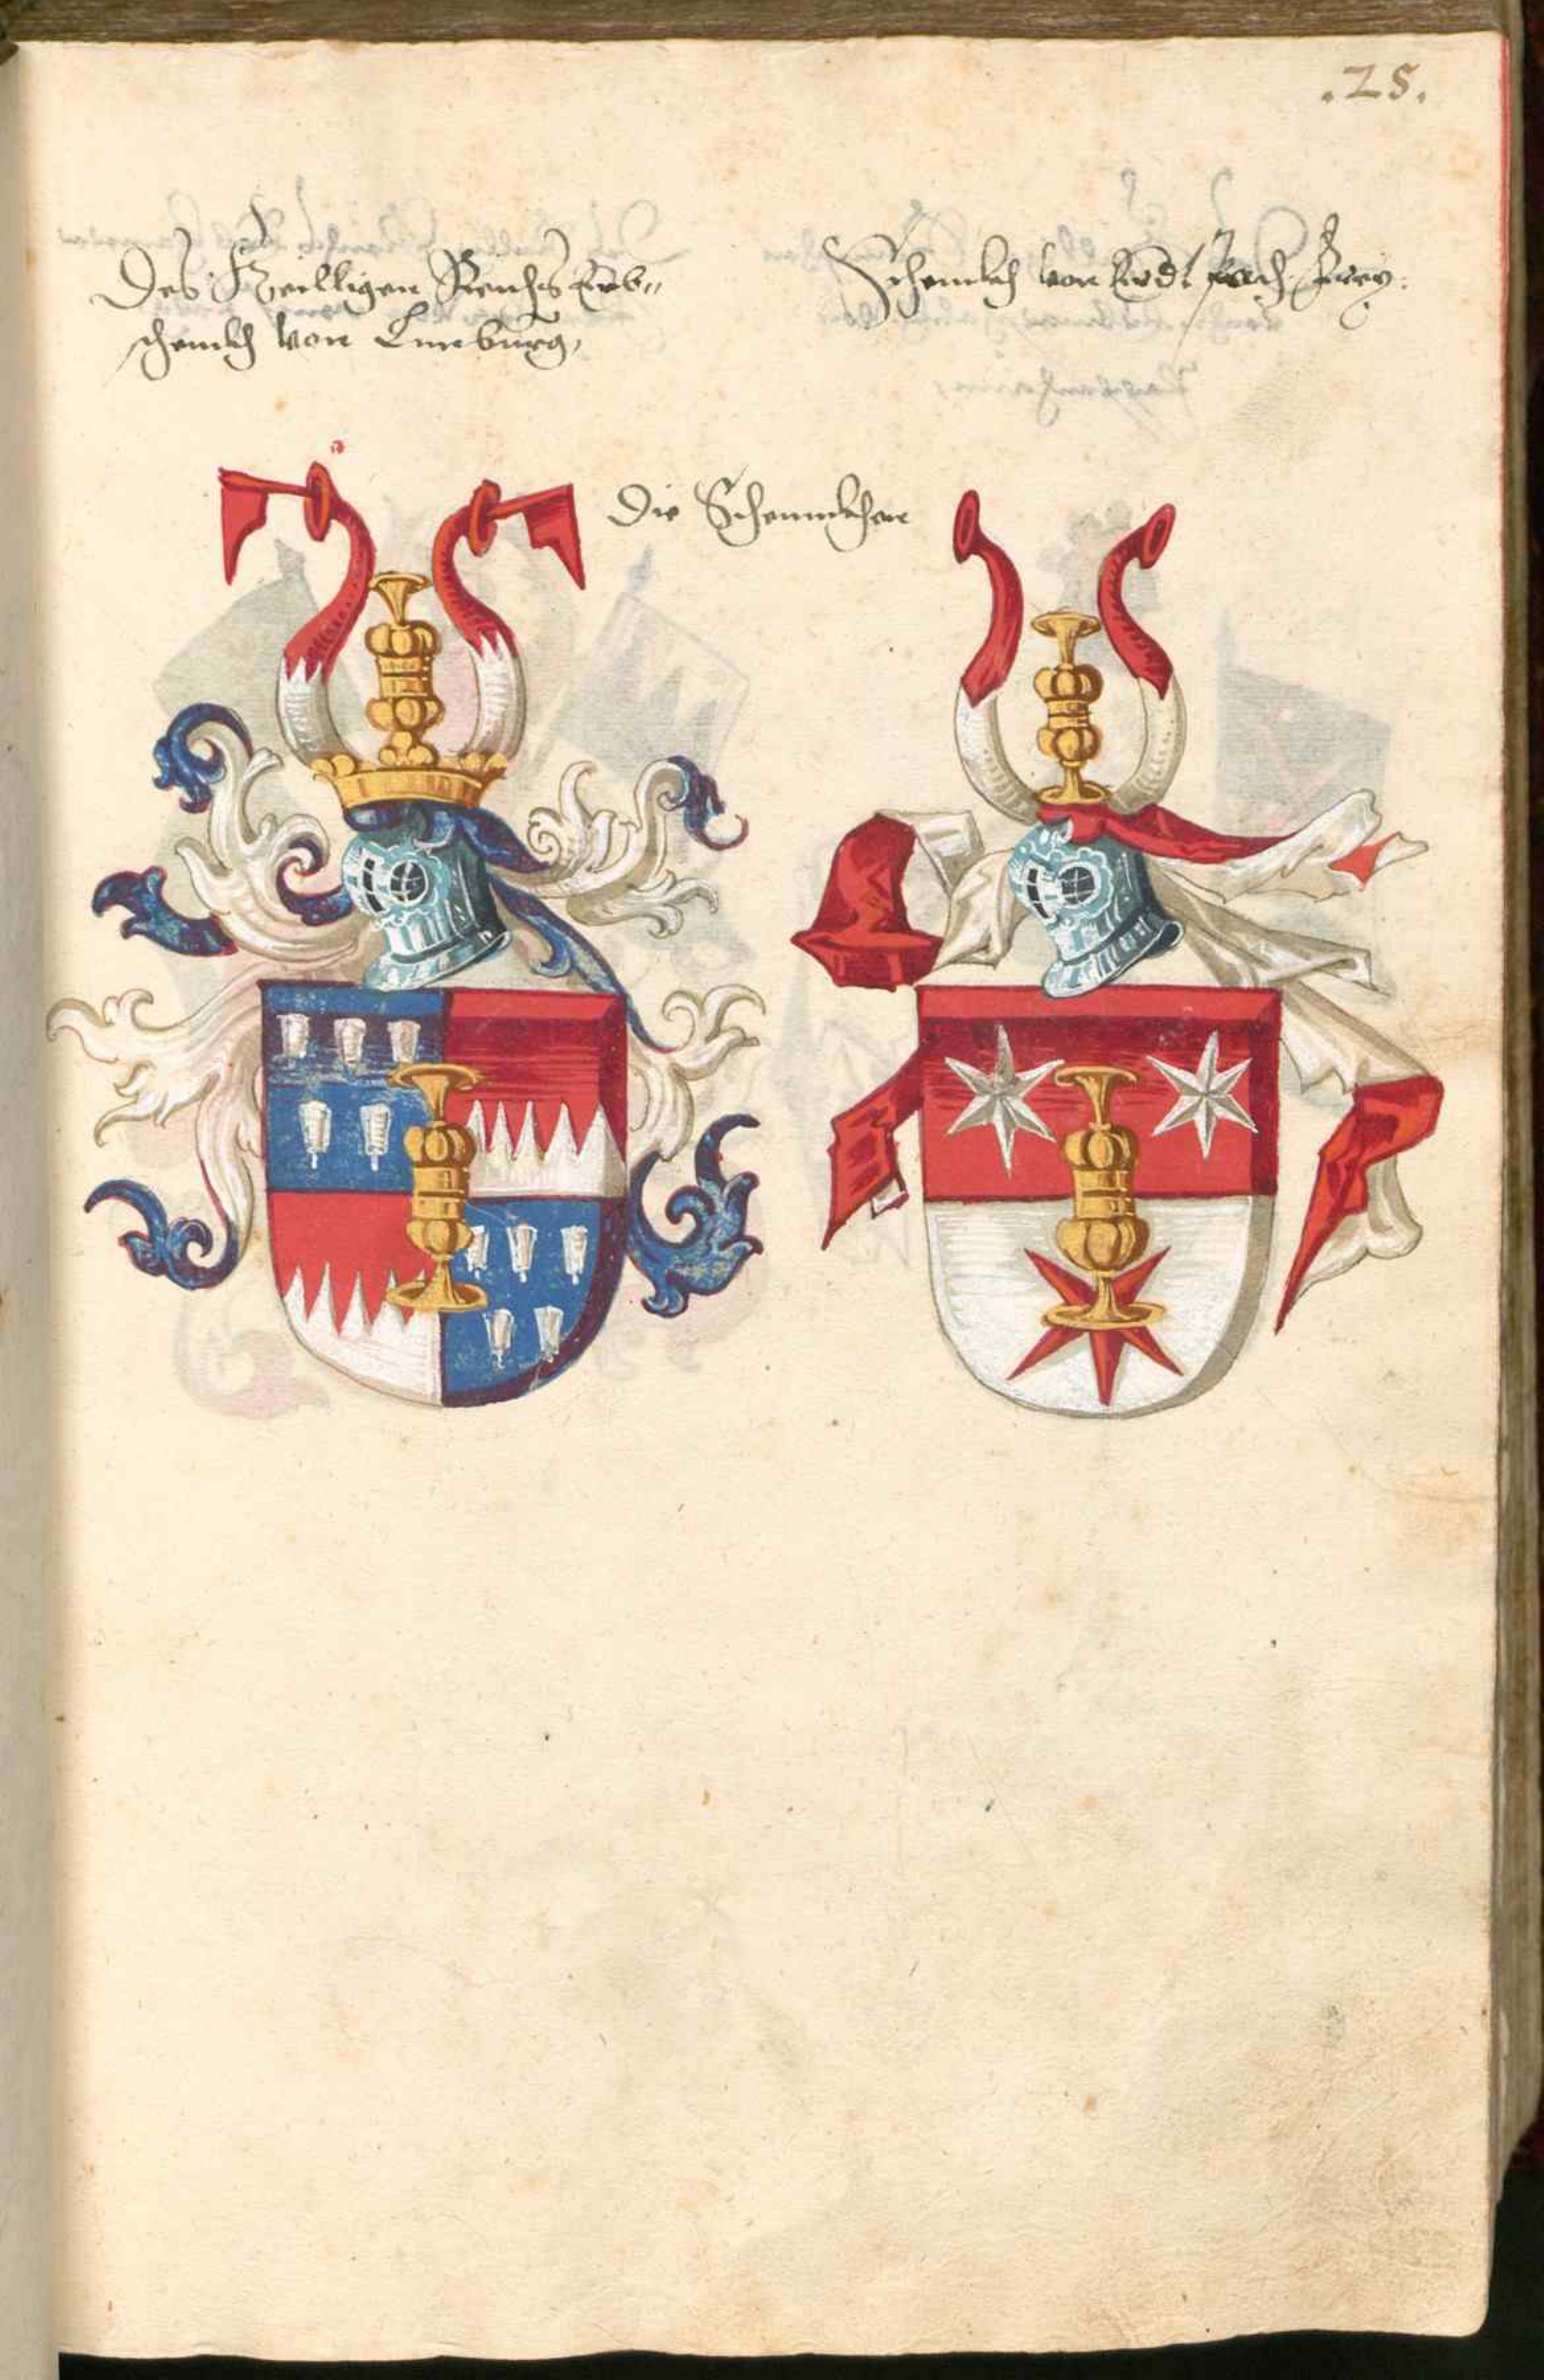 .25.
Des Heilligen Reichs Erb-
schenckh von Limburg,
Schenckh von
Die Schennckhen